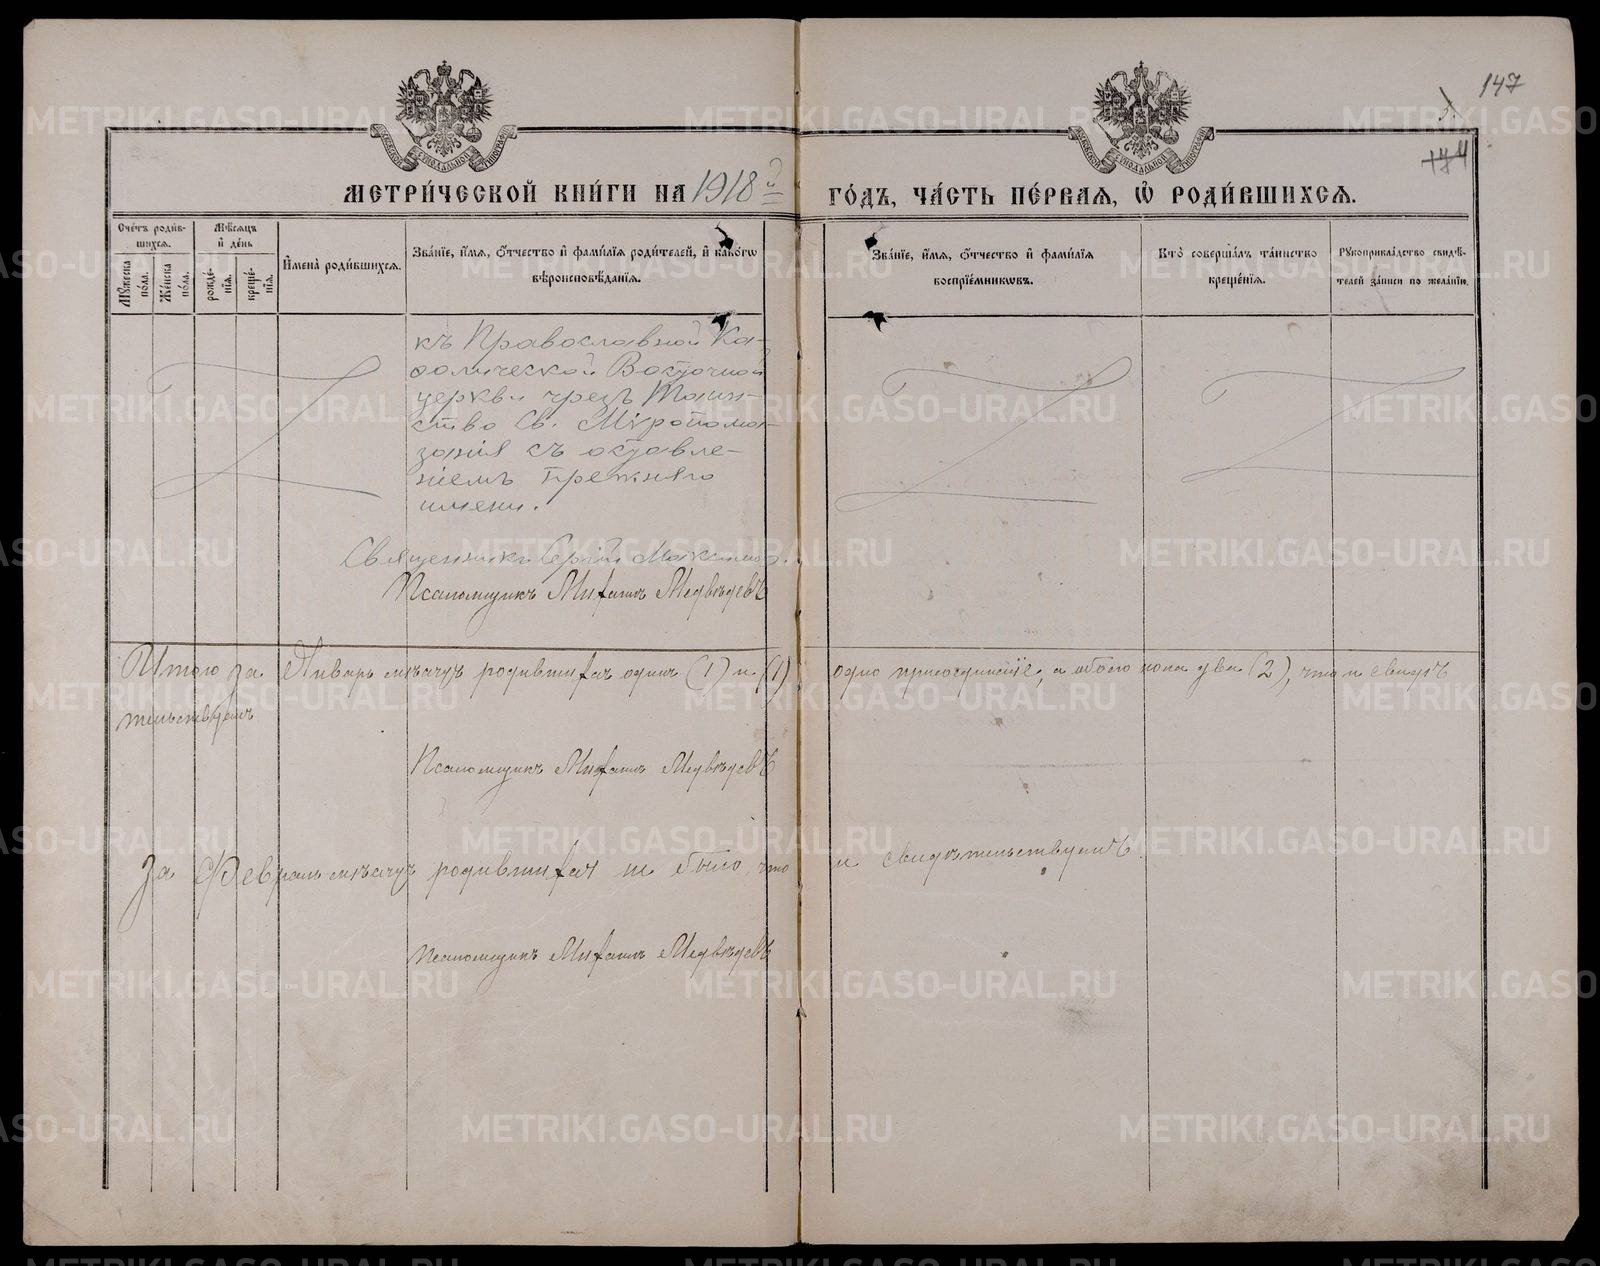 147
1.
144
МОСКОВСКОЙ СѴНОДАЛЬНОЙ ТИПОГРАФІИ
МОСКОВСКОЙ СѴНОДАЛЬНОЙ ТИПОГРАФІИ
МЕТРИ́ЧЕСКОЙ КНИ́ГИ НА 1918й ГО́ДЪ, ЧА́СТЬ ПЕ́РВАЯ, Ѡ РОДИ́ВШИХСЯ.
Сче́тъ роди́вшихся.
Му́жеска по́ла.
Же́нска по́ла.
Мѣ́сяцъ и де́нь
рожде́нія.
креще́нія.
Имена̀ роди́вшихся.
Зва́ніе, и́мя, ѻ҆́тчество и҆ фами́лія роди́телей, и҆ како́гѡ вѣроисповѣ́данія.
Зва́ніе, и́мя, ѻ҆́тчество и҆ фами́лія воспріе́мникѡвъ.
Кто̀ соверша́лъ та́инство креще́нія.
Рꙋкоприкла́дство свидѣ́телей за́писи по жела́нію.
къ Православной Ка-
ѳолической Восточной
церкви чрезъ Таин-
ство Св. Мѵропома-
занія съ оставле-
ніемъ прежняго
имени.
Священникъ Сергій Максимов.
Псаломщикъ Михаилъ Медвѣдевъ
Итого за Январь мѣсяцъ родившихся одинъ (1) и (1) одно присоединеніе, а обоего пола два (2), что и свидѣ
тельствуемъ
Псаломщикъ Михаилъ Медвѣдевъ
За Февраль мѣсяцъ родившихся не было, что и свидѣтельствуемъ.
Псаломщикъ Михаилъ Медвѣдевъ
METRIKI.GASO-URAL.RU